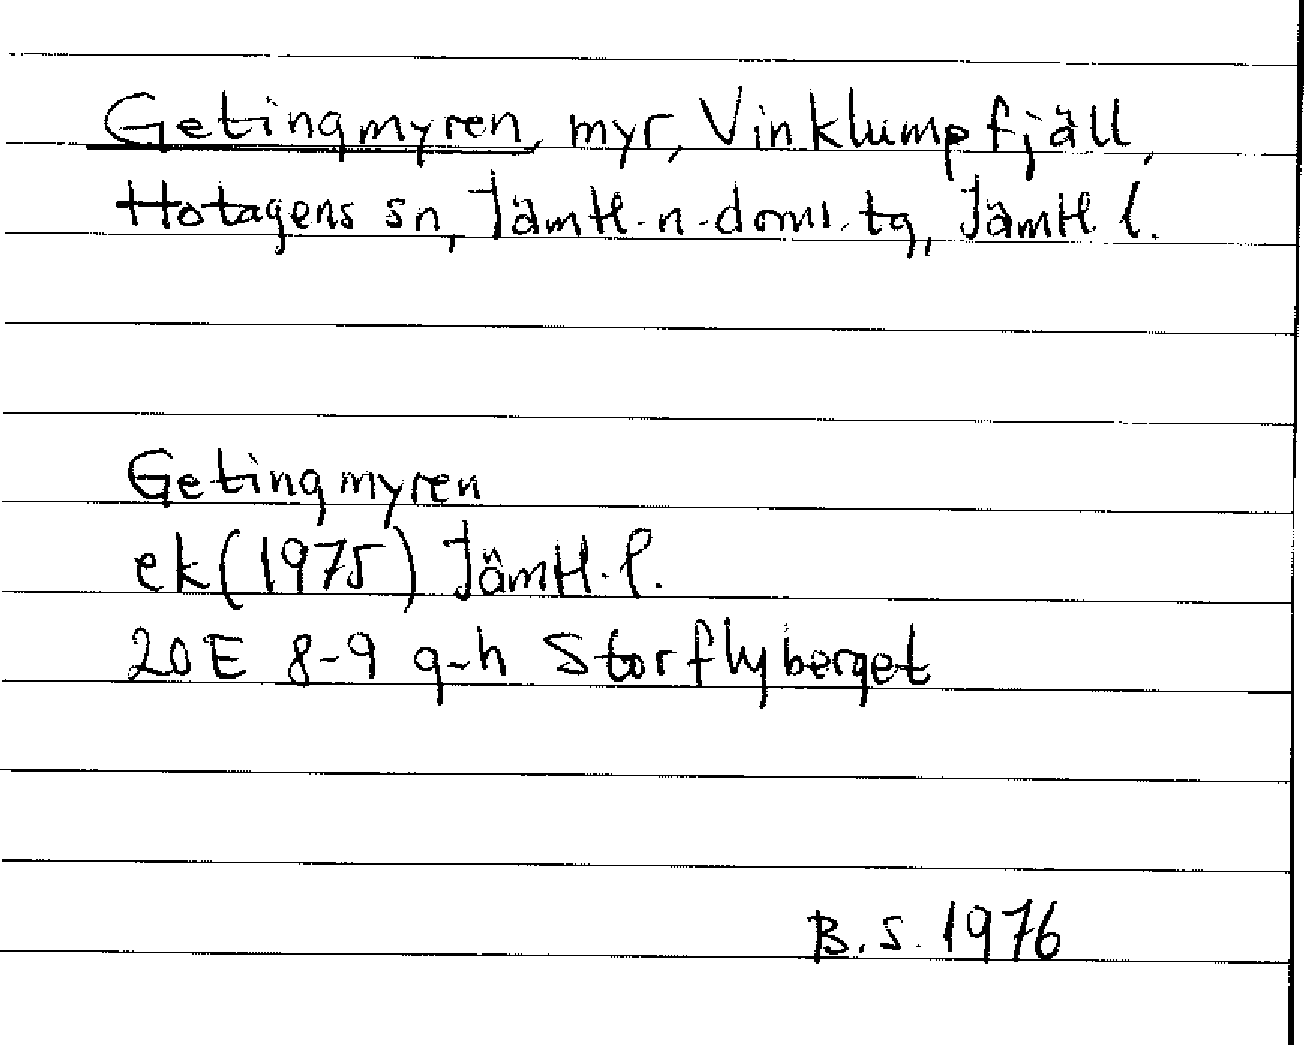 Getingmyren, myr, Vinklumpfjäll,
Hotagens sn, Jämtl. n. doms. tg, Jämtl. l.
Getingmyren
ek (1975) Jämtl. l.
20E 8-9 g-h Storflyberget
B. S. 1976